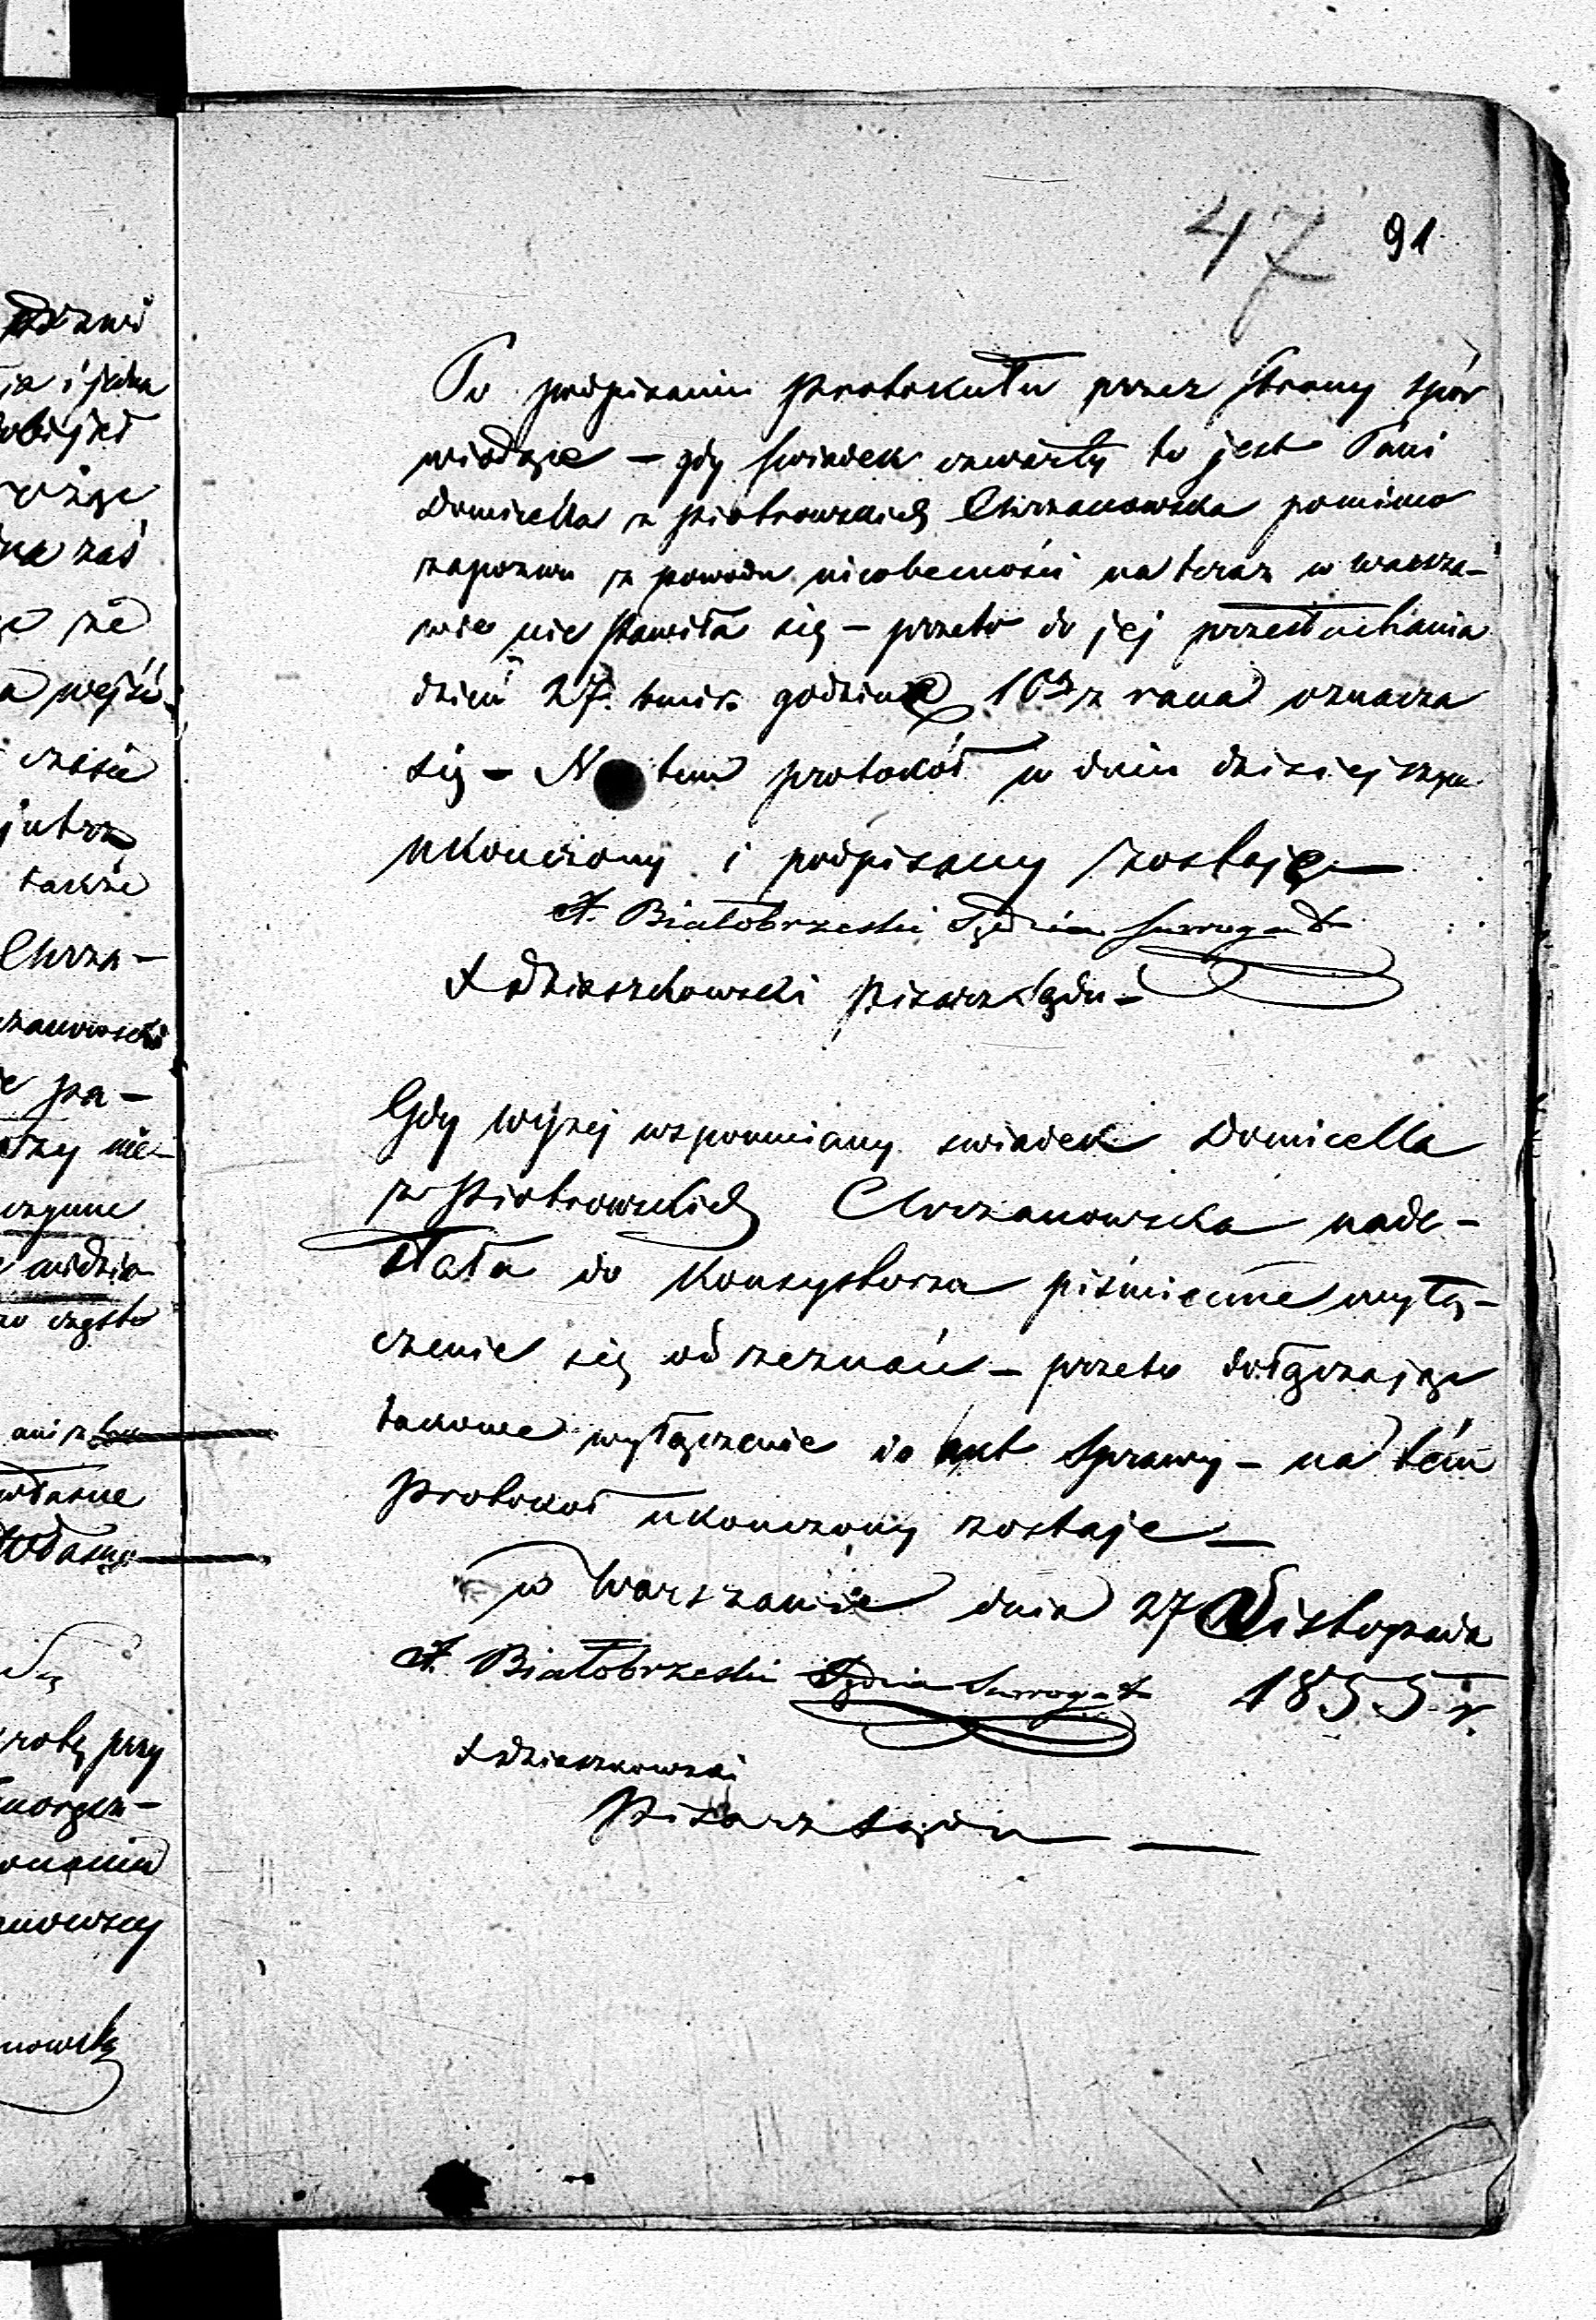 47 91
Po podpisaniu Protokułu przez strony spór
wiodące – gdy swiadek czwarty to jest Pani
Domicella z Piotrowskich Chrzanowska pomimo
zapozwu z powodu nieobecności na teraz w Warsza-
wie nie stawiła się – przeto do jej przesłuchania
dzień 27. bmir. godzinę 10tą z rana oznacza
się – Na tem protokół w dniu dzisiejszym
ukończony i podpisany zostaje
A. Białobrzeski Sędzia Surrogat
Pisarz Sądu –
Gdy wyżej wspomniany swiadek Domicella
z Piotrowskich Chrzanowska nade-
słała do Konsystorza piśmienne wyłą-
czenie się od zeznań – przeto dołączając
takowe wyłączenie do akt Sprawy – na tém
Protokoł ukończony zostaje –
w Warszawie dnia 27 Listopada
1855 r.
A. Białobrzeski Sędzia Surrogat
Pisarz Sądu —